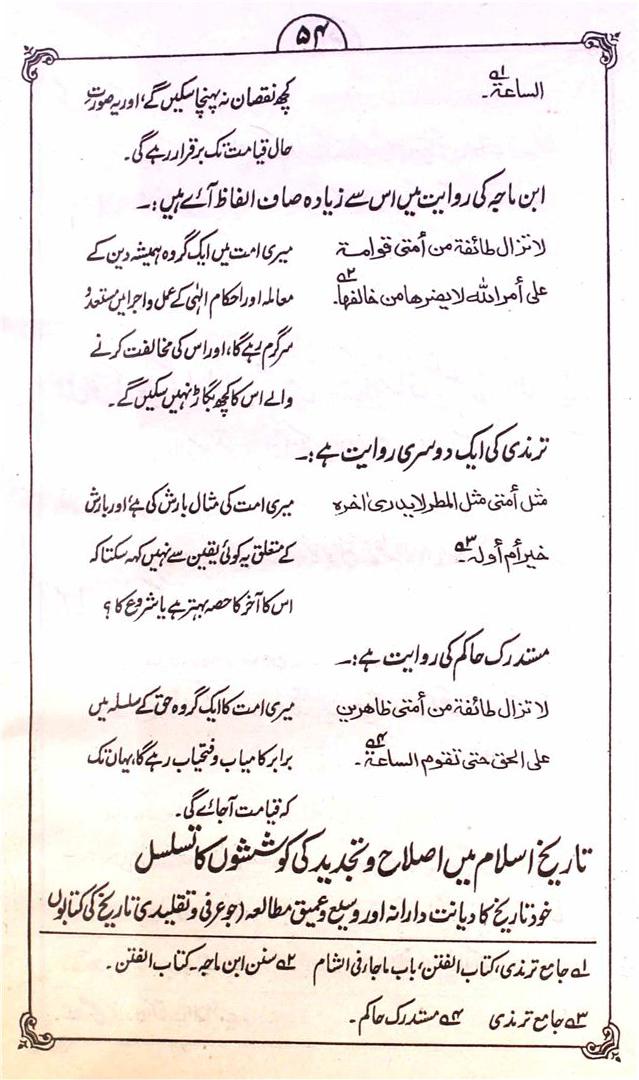 ۵۴
الساعة۔ ؎۱
کچھ نقصان نہ پہنچا سکیں گے، اور یہ صورت
حال قیامت تک برقرار رہے گی۔
ابن ماجہ کی روایت میں اس سے زیادہ صاف الفاظ آئے ہیں:۔
لا تزال طائفة من أمتی قوامة
علی أمر الله لا یضرها من خالفها۔ ؎۲
میری امت میں ایک گروہ ہمیشہ دین کے
معاملہ اور احکام الٰہی کے عمل و اجرا میں مستعد و
سرگرم رہے گا، اور اس کی مخالفت کرنے
والے اس کا کچھ بگاڑ نہیں سکیں گے۔
ترمذی کی ایک دوسری روایت ہے:۔
مثل أمتی مثل المطر لا یدری اٰخره
خیر أم أوله ؎۳
میری امت کی مثال بارش کی ہے اور بارش
کے متعلق یہ کوئی یقین سے نہیں کہہ سکتا کہ
اس کا آخر کا حصہ بہتر ہے یا شروع کا؟
مستدرک حاکم کی روایت ہے:۔
لا تزال طائفة من أمتی ظاهرین
علی الحق حتی تقوم الساعة۔ ؎۴
میری امت کا ایک گروہ حق کے سلسلہ میں
برابر کامیاب و فتحیاب رہے گا، یہاں تک
کہ قیامت آجائے گی۔
تاریخ اسلام میں اصلاح و تجدید کی کوششوں کا تسلسل
خود تاریخ کا دیانت دارانہ اور وسیع و عمیق مطالعہ (جو عرفی و تقلیدی تاریخ کی کتابوں
؎۱ جامع ترمذی، کتاب الفتن، باب ماجاء فی الشام ؎۲ سنن ابن ماجہ۔ کتاب الفتن۔
؎۳ جامع ترمذی ؎۴ مستدرک حاکم۔